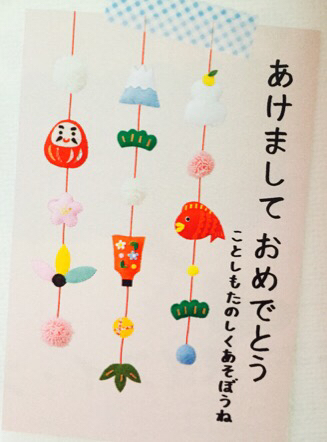 あけまして おめでとう
ことしもたのしくあそぼうね